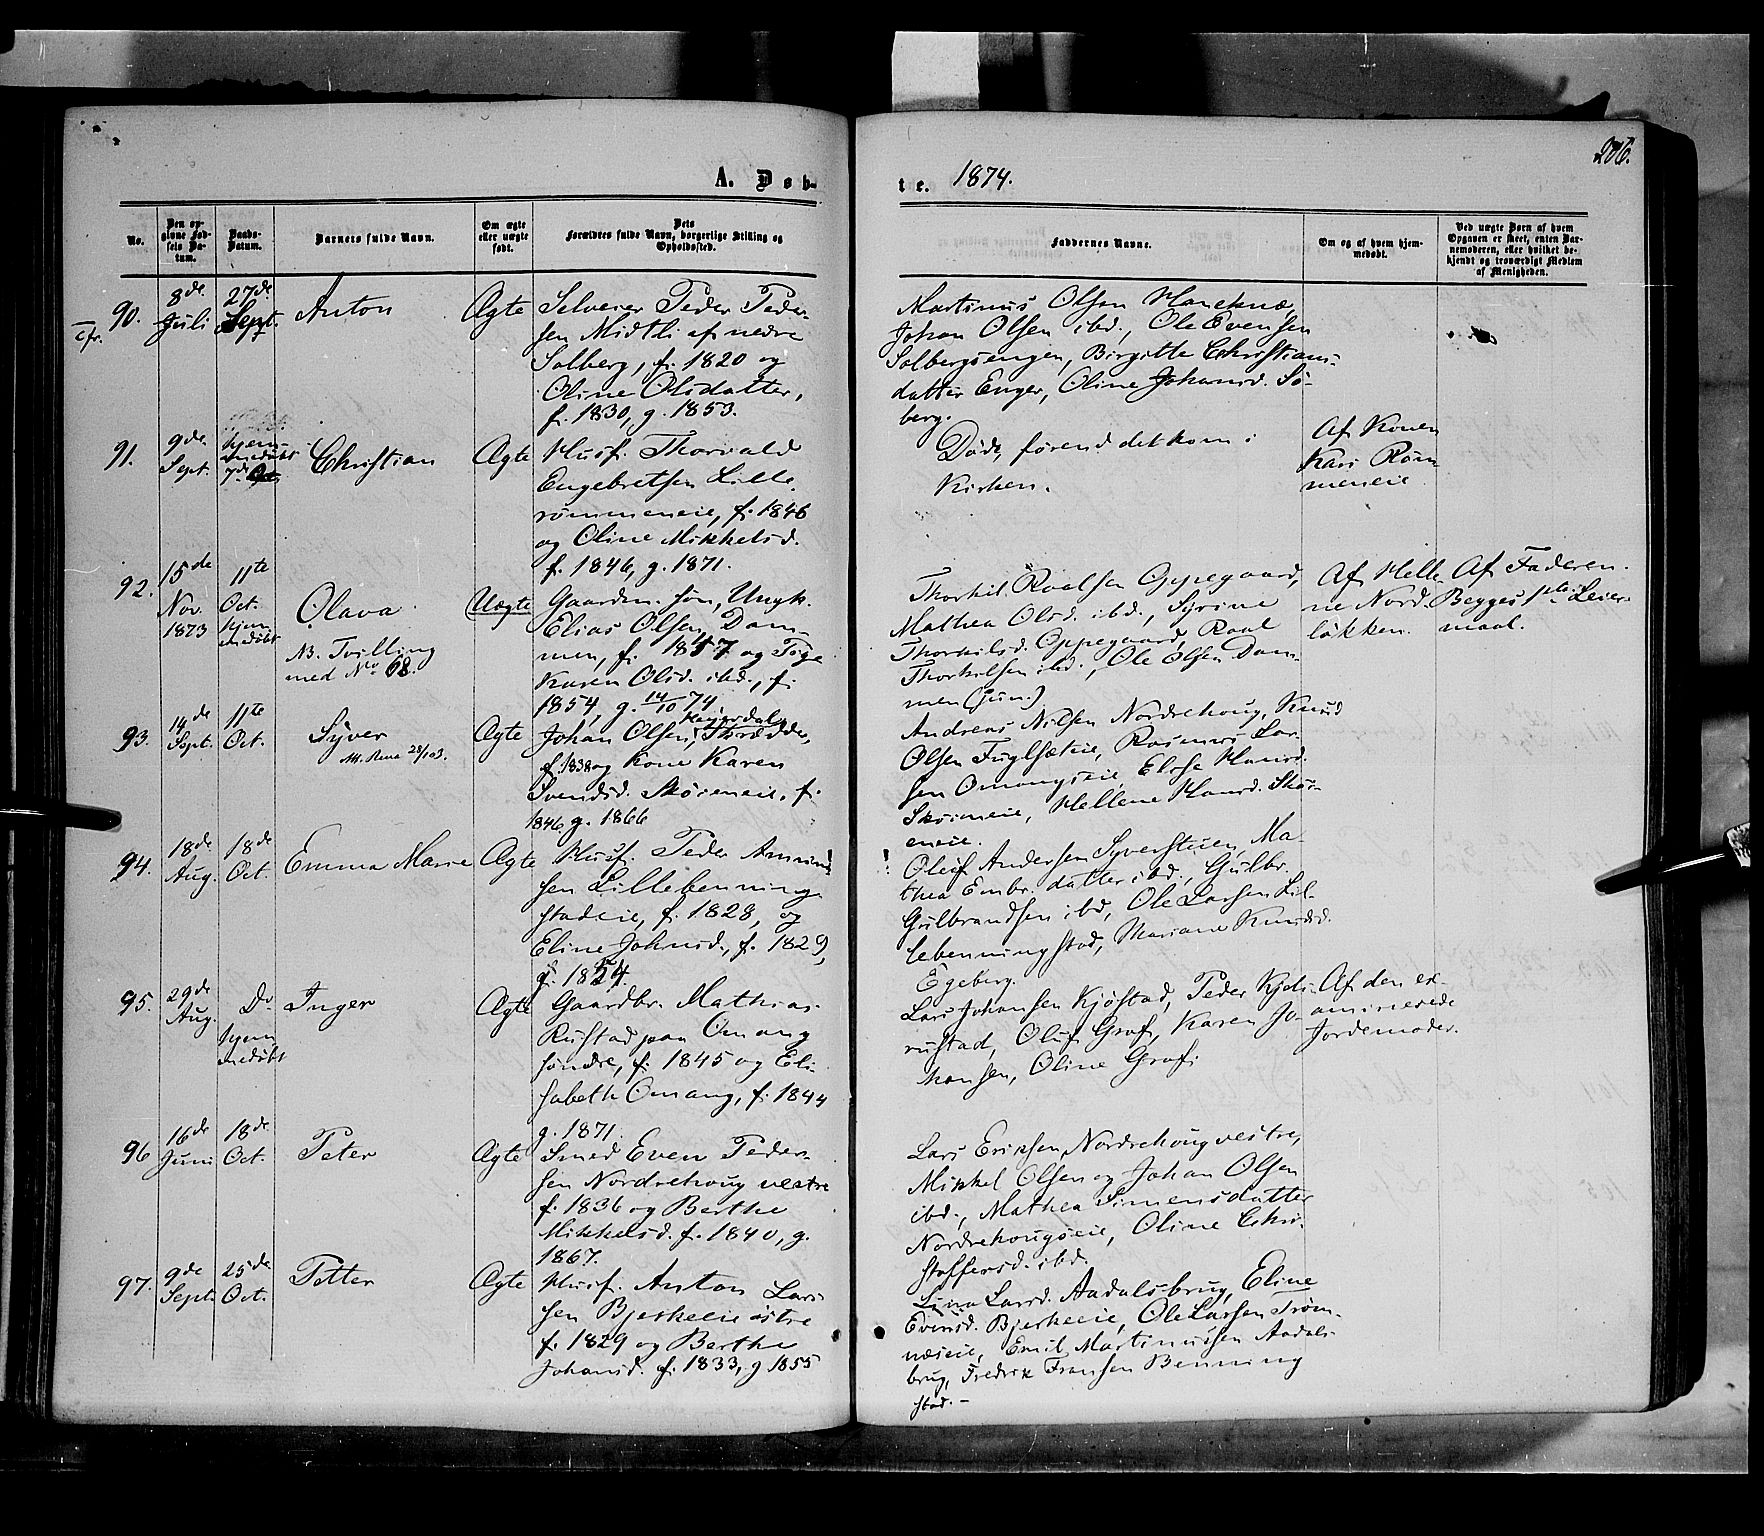 286.
A. Døb-
te. 1874.
No.
Den op-
givne Fød-
sels Da-
tum.
Daabs-
Datum.
Barnets fulde Navn.
Om ægte
eller uægte
født.
Dets
Forældres fulde Navn, borgerlige Stilling og
Opholdssted.
Faddernes Navne.
Om og af hvem hjem-
medøbt.
Ved uægte Børn af hvem
Opgaven er skeet, enten Bar-
nemoderen, eller hvilket be-
kjendt og troværdigt Medlem
af Menigheden.
90.
8de
Juli
27de
Sept.
Anton
Ægte
Selveier Peder Peder-
sen Midtli af nedre
Solberg, f. 1820 og
Oline Olsdatter,
f. 1830, g. 1853.
Martinus Olsen
Johan Olsen ibd., Ole Evensen
Solbergsengen, Birgitte Christians-
datter Enger, Oline Johansd. Sø-
berg.
91.
9de
Sept.
hjem-
medøbt
7de
Christian
Ægte
Husf. Thorvald
Engebretsen Lille-
rømmeneie, f. 1846
og Oline Mikkelsd.
f. 1846, g. 1871.
Døde, førend det kom i
Kirken.
Af Konen
Kari Røm-
meneie
92.
15de
Nov.
1873
11te
Oct.
hjem-
medøbt
Olava
NB. Tvilling
med No 68.
Uægte
Gaardm. søn, Ungk.
Elias Olsen, Dam-
men, f. 1857 og Pige
Karen Olsd. ibd., f.
1854, g. 14/10 74
Thorkil Roalsen Oppegaard,
Mathea Olsd. ibd., Syrine
Thorkilsd. Oppegaard, Roal
Thorkilsen ibd., Ole Olsen Dam-
men (jun.)
Af Helle-
ne Nord-
løkken.
Af Faderen.
Begges 1ste Leier-
maal.
93.
14de
Sept.
11te
Oct.
Syver
Ægte
Johan Olsen,
f. 1838 og Kone Karen
Svendsd. Skøieneie, f.
1846, g. 1866
Andreas Nilsen Nordrehoug, Knud
Olsen Fuglsæteie, Rasmus Lar-
sen Omangseie, Else Hansd.
Skøieneie, Hellene Hansd. Skøi-
eneie.
94.
18de
Aug.
18de
Oct.
Emma Marie
Ægte
Husf. Peder Amund-
sen Lillebenning-
stadeie, f. 1828, og
Eline Johnsd., f. 1829,
g. 1854.
Oluf Andersen Syverstuen, Ma-
thea Embr. datter ibd., Gulbr.
Gulbrandsen ibd, Ole Larsen Lil-
lebenningstad, Mariane Knudsd.
Egeberg.
95.
29de
Aug.
Do
hjem
medøbt
Inger
Ægte
Gaardbr. Mathias
Rustad paa Omang
søndre, f. 1845 og Eli-
sabeth Omang, f. 1844
g. 1871.
Lars Johansen Kjøstad, Peder Kjels-
rustad, Oluf Grøf, Karen Jo-
hansen, Oline Grøf.
Af den ex-
aminerede
Jordemoder.
96
16de
Juni
18de
Oct.
Peter
Ægte
Smed Even Peder-
sen Nordrehoug vestre
f. 1836 og Berthe
Mikkelsd. f. 1840, g.
1867.
Lars Eriksen Nordrehoug vestre,
Mikkel Olsen og Johan Olsen
ibd., Mathea Simensdatter
Nordrehougseie, Oline Chri-
stoffersd. ibd.
97.
9de
Sept.
25de
Oct.
Petter
Ægte
Husf. Anton Lar-
sen Bjerkeeie østre
f. 1829 og Berthe
Johansd. f. 1833, g 1855
Lina Larsd. Aadalsbrug, Eline
Evensd. Bjerkeeie, Ole Larsen Trøm-
næseie, Emil Martinussen Aadals-
brug, Fredrik Fransen Benning
stad. -